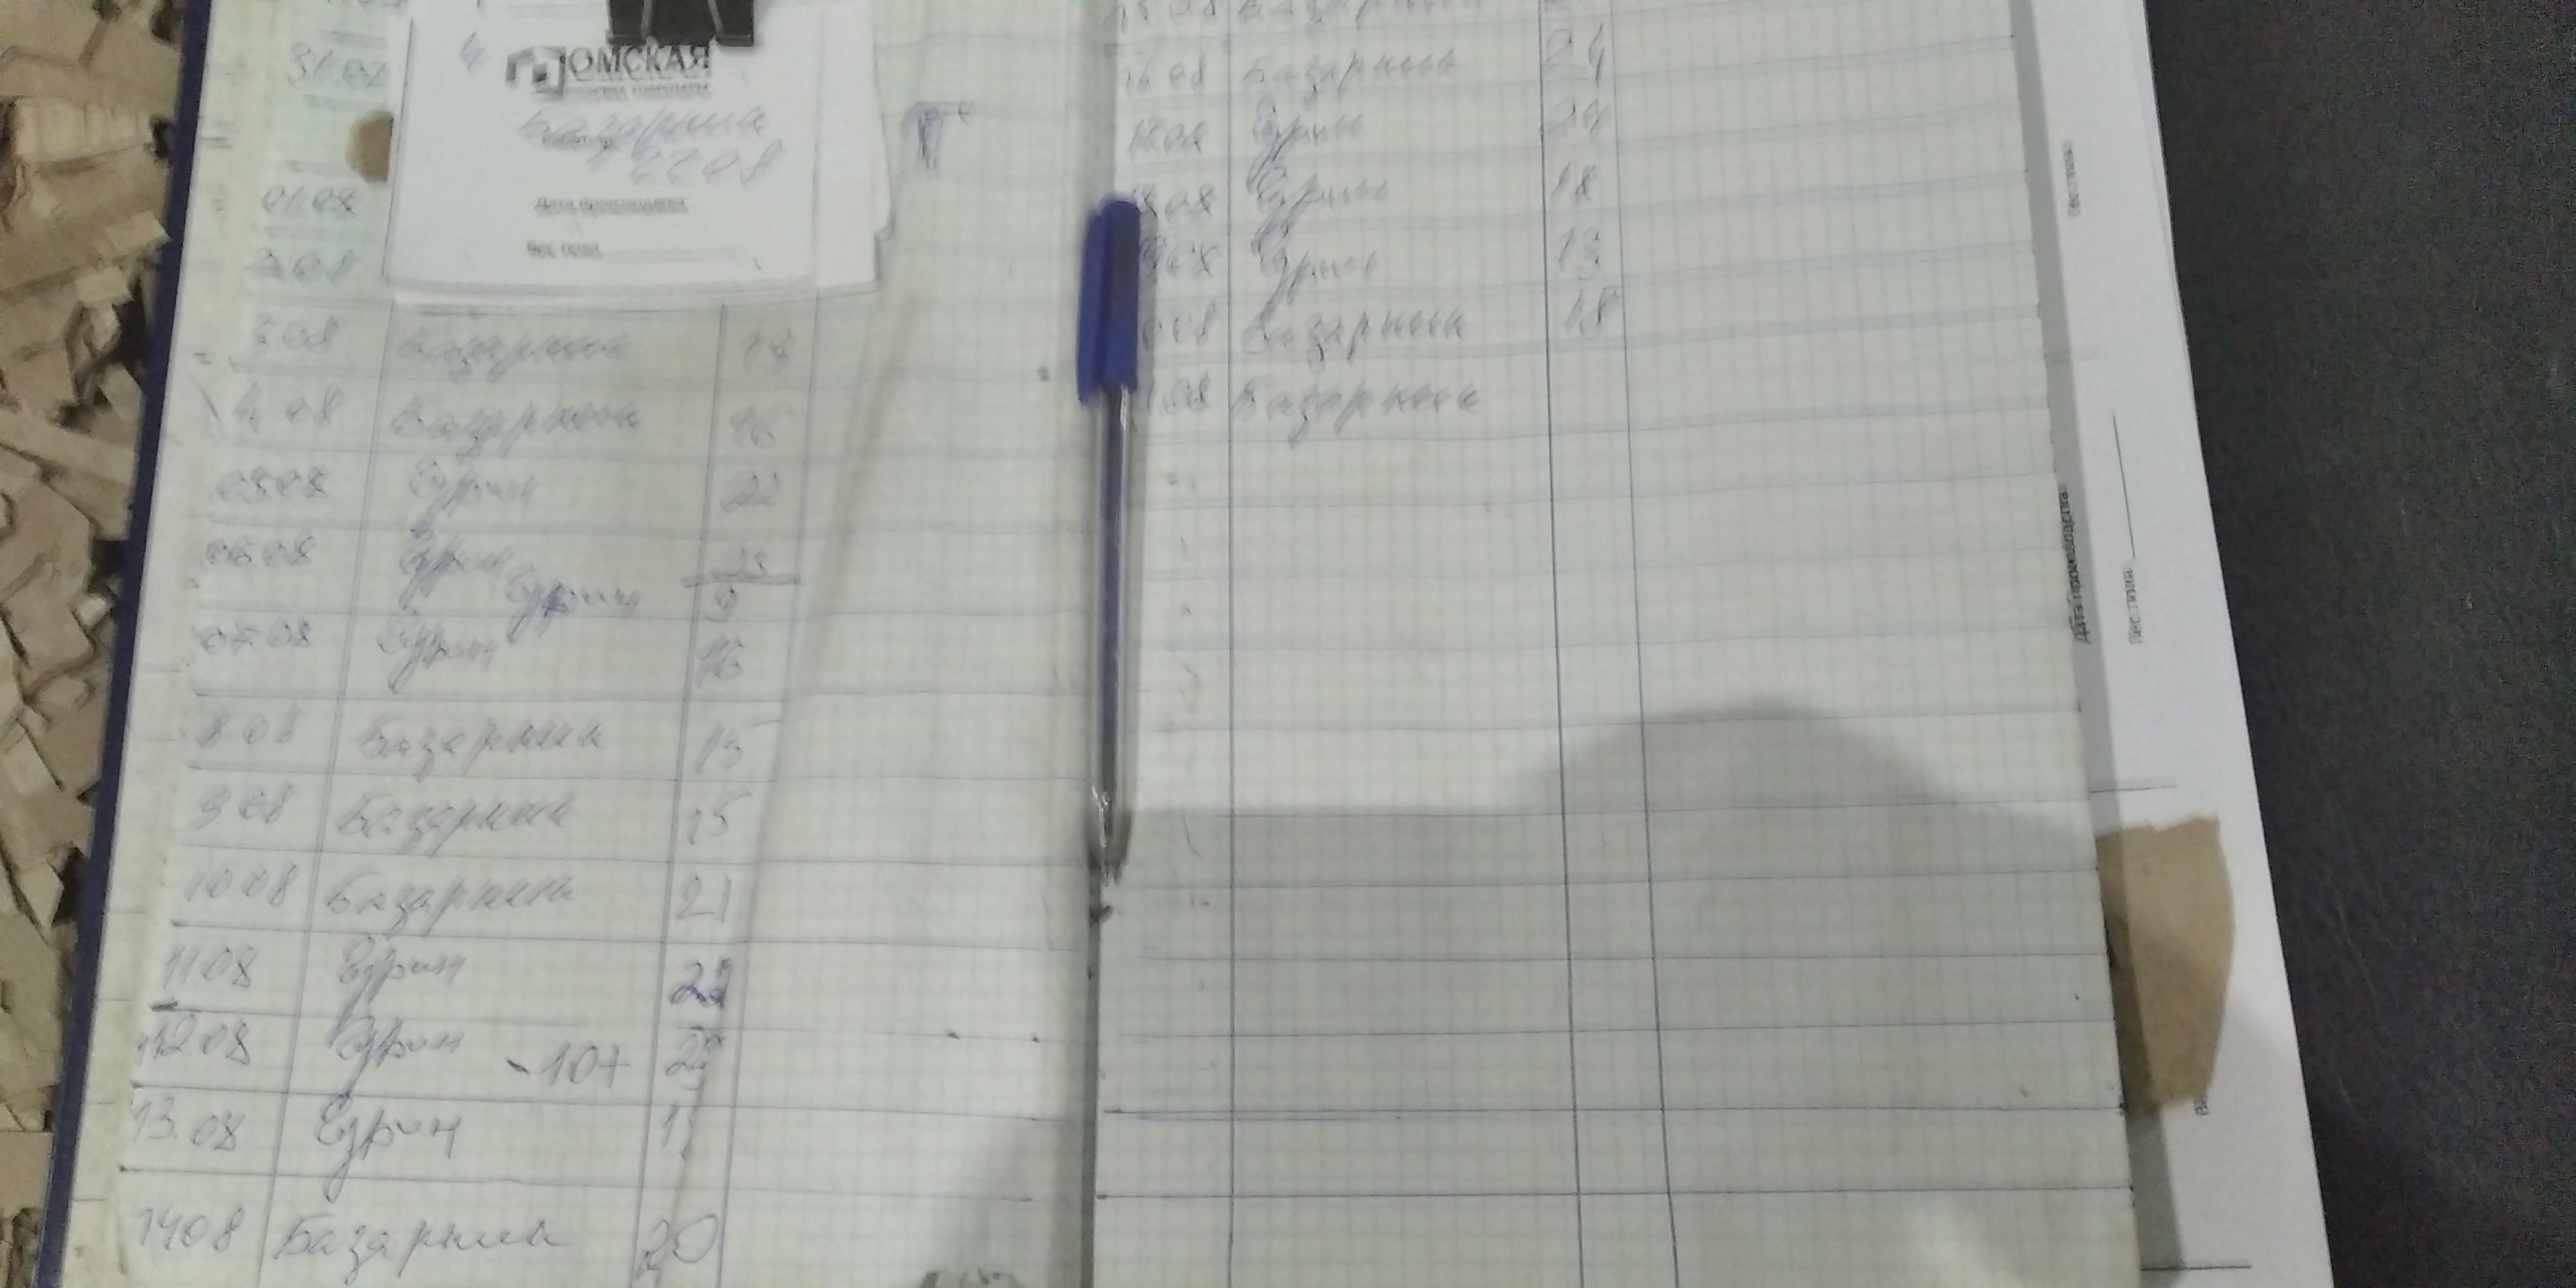 31.07
ОМСКАЯ
Базаркина
2208
Дата производства
Вес тюка
01.08
2 08
3 08 Базаркина 18
4 08 Базаркина 16
05 08 Гурин 22
06.08 Гурин 23
Гурин 9
07 08 Гурин 16
8 08 Базаркина 15
9 08 Базаркина 15
10 08 Базаркина 21
11 08 Гурин 22
12 08 Гурин - 10+
13.08 Гурин
14 08 Базаркина 20
15 08 Базаркина
16 08 Базаркина 24
17.08 Гурин 24
18 08 Гурин 18
08 Гурин 13
08 Базаркина 18
08 Базаркина
Вес тюка
Дата производства
Вес тюка